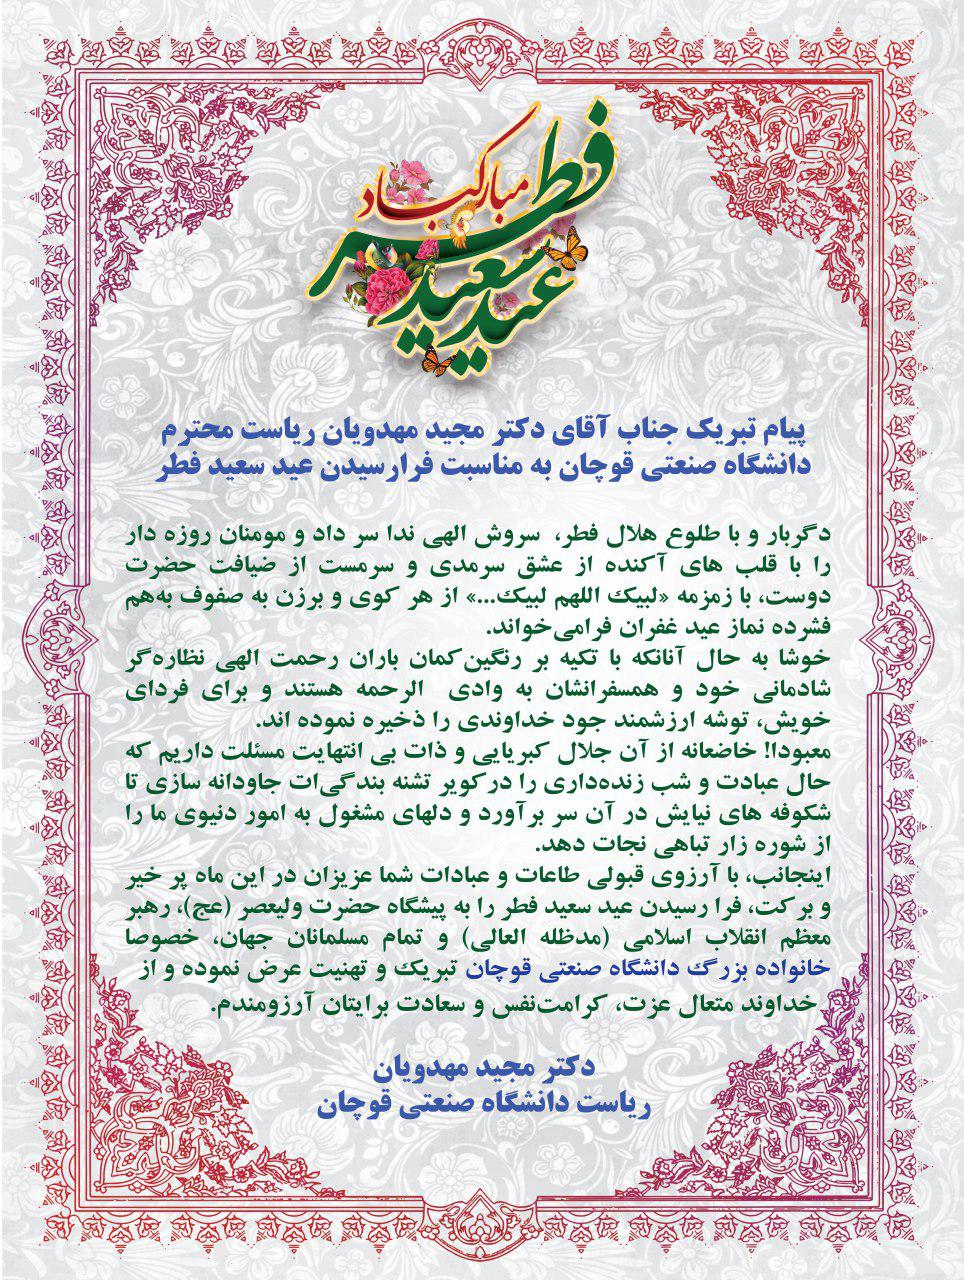 عید سعید فطر مبارکباد
پیام تبریک جناب آقای دکتر مجید مهدویان ریاست محترم
دانشگاه صنعتی قوچان به مناسبت فرارسیدن عید سعید فطر
دگربار و با طلوع هلال فطر، سروش الهی ندا سر داد و مومنان روزه دار
را با قلب های آکنده از عشق سرمدی و سرمست از ضیافت حضرت
دوست، با زمزمه «لبیک اللهم لبیک...» از هر کوی و برزن به صفوف به‌هم
فشرده نماز عید غفران فرامی‌خواند.
خوشا به حال آنانکه با تکیه بر رنگین‌کمان باران رحمت الهی نظاره‌گر
شادمانی خود و همسفرانشان به وادی الرحمه هستند و برای فردای
خویش، توشه ارزشمند جود خداوندی را ذخیره نموده اند.
معبودا! خاضعانه از آن جلال کبریایی و ذات بی انتهایت مسئلت داریم که
حال عبادت و شب زنده‌داری را درکویر تشنه بندگی‌ات جاودانه سازی تا
شکوفه های نیایش در آن سر برآورد و دلهای مشغول به امور دنیوی ما را
از شوره زار تباهی نجات دهد.
اینجانب، با آرزوی قبولی طاعات و عبادات شما عزیزان در این ماه پر خیر
و برکت، فرا رسیدن عید سعید فطر را به پیشگاه حضرت ولیعصر (عج)، رهبر
معظم انقلاب اسلامی (مدظله العالی) و تمام مسلمانان جهان، خصوصا
خانواده بزرگ دانشگاه صنعتی قوچان تبریک و تهنیت عرض نموده و از
خداوند متعال عزت، کرامت‌نفس و سعادت برایتان آرزومندم.
دکتر مجید مهدویان
ریاست دانشگاه صنعتی قوچان